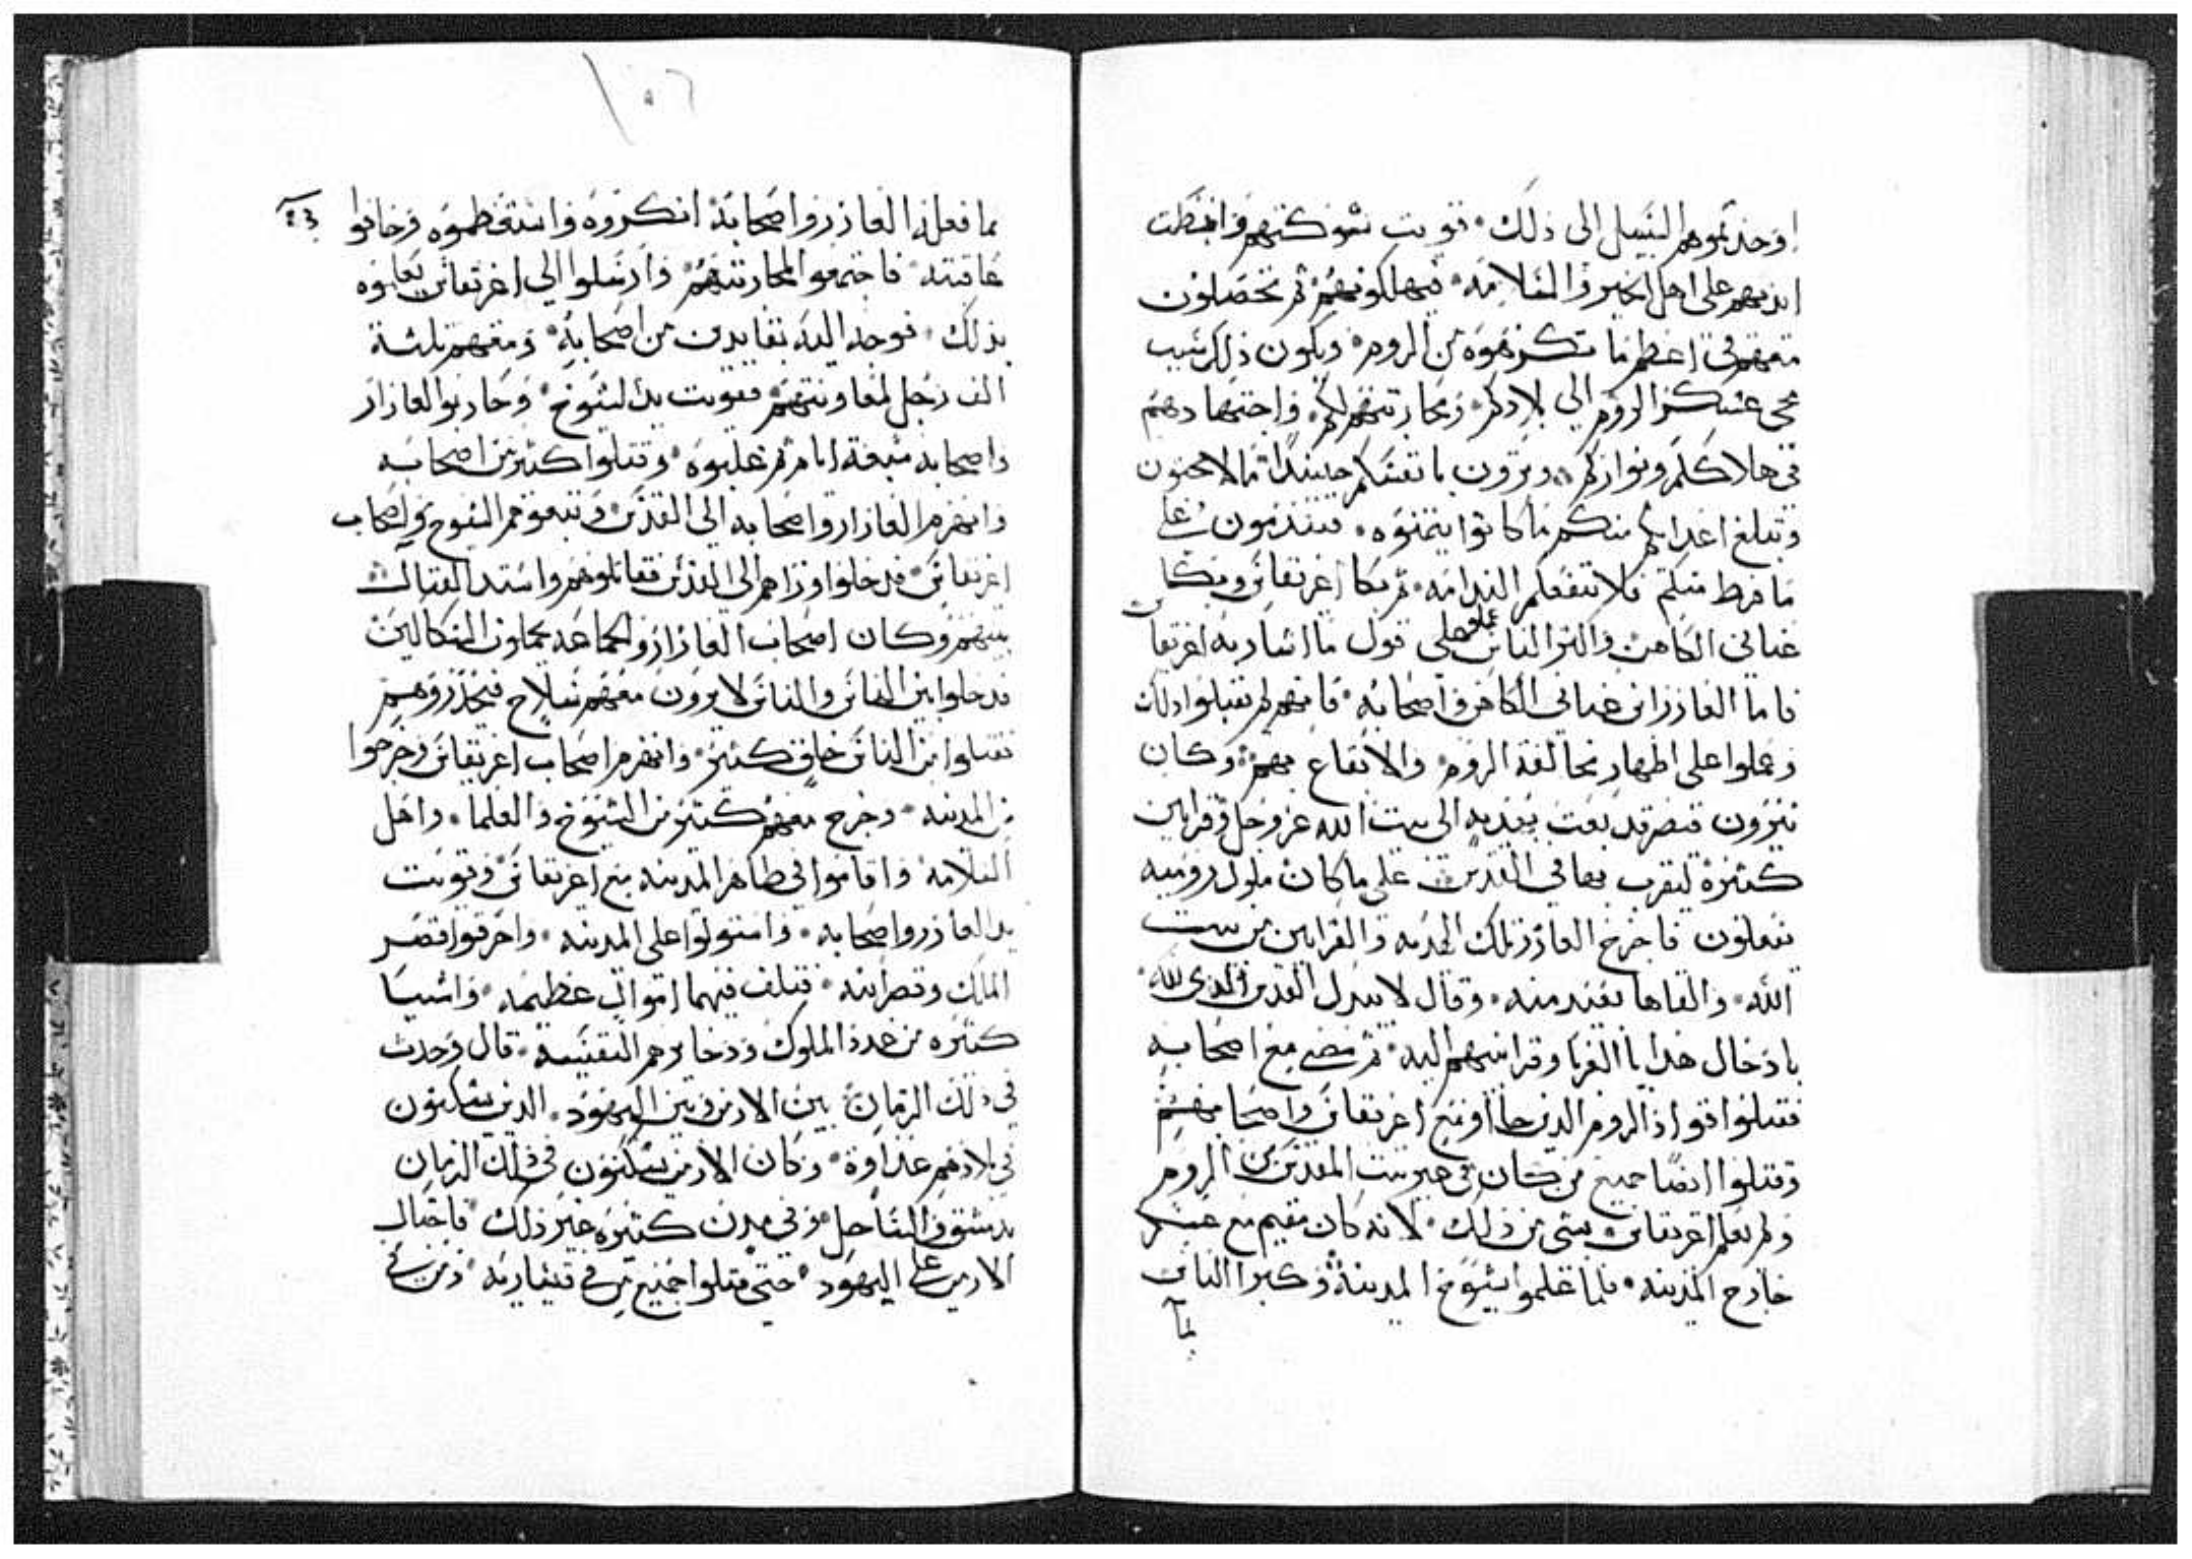 اوجدتموهم السبيل الى ذلك ٠ قويت شوكتهم وانبسطت
ايديهم على اهل الخير والسلامه ٠ فيهلكونهم ثم تحصلون
معهم في اعظم ما تكرهوه من الروم ٠ ويكون ذلك سبب
مجي عسكر الروم الي بلادكم ٠ ومحاربتهم لكم ٠ واجتهادهم
في هلاككم وبواركم ٠ وترون بانفسكم حينيذ ما لا تحبون
وتبلغ اعدايكم منكم ما كانوا يتمنوه ٠ فتندمون على
ما فرط منكم فلا تنفعكم الندامه ٠ ثم بكا اغريقاس وبكا
عناني الكاهن واكثر الناس عملو على قول ما اشار به اغريقاس
فاما العازر ابن عناني الكاهن واصحابه ٠ فانهم لم يقبلوا ذلك
وعملوا على اظهار مخالفة الروم ٠ والايقاع بهم ٠ وكان
نيرون قيصر قد بعث بهديه الى بيت الله عز وجل وقرابين
كثيرة ليقرب بها في القدس ٠ على ما كان ملوك روميه
يفعلون فاخرج العازر تلك الهديه والقرابين من بيت
الله ٠ والقاها بعيد منه ٠ وقال لا يبدل القدس الذي لله ٠
بادخال هدايا الغربا وقرابينهم اليه ٠ ثم مضي مع اصحابه
فقتلوا قواد الروم الذين جاأو مع اغريقاس واصحابهم
وقتلوا ايضا جميع من كان في بيت المقدس من الروم
ولم يعلم اغريقاس بشي من ذلك ٠ لانه كان مقيم مع عسكر
خارج المدينه ٠ فلما علموا شيوخ المدينة وكبرا الناس
بما
١٥٦
بما فعل العازر واصحابه ٠ انكروه واستعظموه وخافوا
عاقبته ٠ فاجتمعوا لمحاربتهم ٠ وارسلوا الي اغريقاس يعلموه
بذلك ٠ فوجه اليه بقايدين من اصحابه ٠ ومعهم ثلثة
الف رجل لمعاونتهم فقويت يد الشيوخ ٠ وحاربوا العازار
واصحابه سبعة ايام ثم غلبوه ٠ وقتلوا كثير من اصحابه
وانهزم العازار واصحابه الى القدس ٠ وتبعوهم الشيوخ واصحاب
اغريقاس ٠ فدخلوا وراهم الى القدس فقاتلوهم واشتد القتال
بينهم وكان اصحاب العازار وجماعه يحملون السكاكين
فدخلوا بين الناس والناس لا يرون معهم سلاح فيحذروهم
فقتلوا من الناس خلق كثير ٠ وانهزم اصحاب اغريقاس وخرجوا
من المدينه ٠ وخرج معهم كثير من الشيوخ والعلما ٠ واهل
السلامه ٠ واقاموا في ظاهر المدينه مع اغريقاس وقويت
يد العازر واصحابه ٠ واستولوا على المدينه ٠ واحرقوا قصر
الملك وقصر ابنه ٠ فتلف فيهما اموال عظيمه ٠ واشيا
كثيره من عدد الملوك وذخايرهم النفيسه ٠ قال وحدث
في ذلك الزمان بين الارمن وبين اليهود ٠ الذين يسكنون
في بلادهم عداوة ٠ وكان الارمن يسكنون في ذلك الزمان
بدمشق وفي الساحل ٠ وفي مدن كثيره غير ذلك ٠ فاحتال
الارمن على اليهود ٠ حتى قتلوا جميع من في قيساريه ٠ ومن في